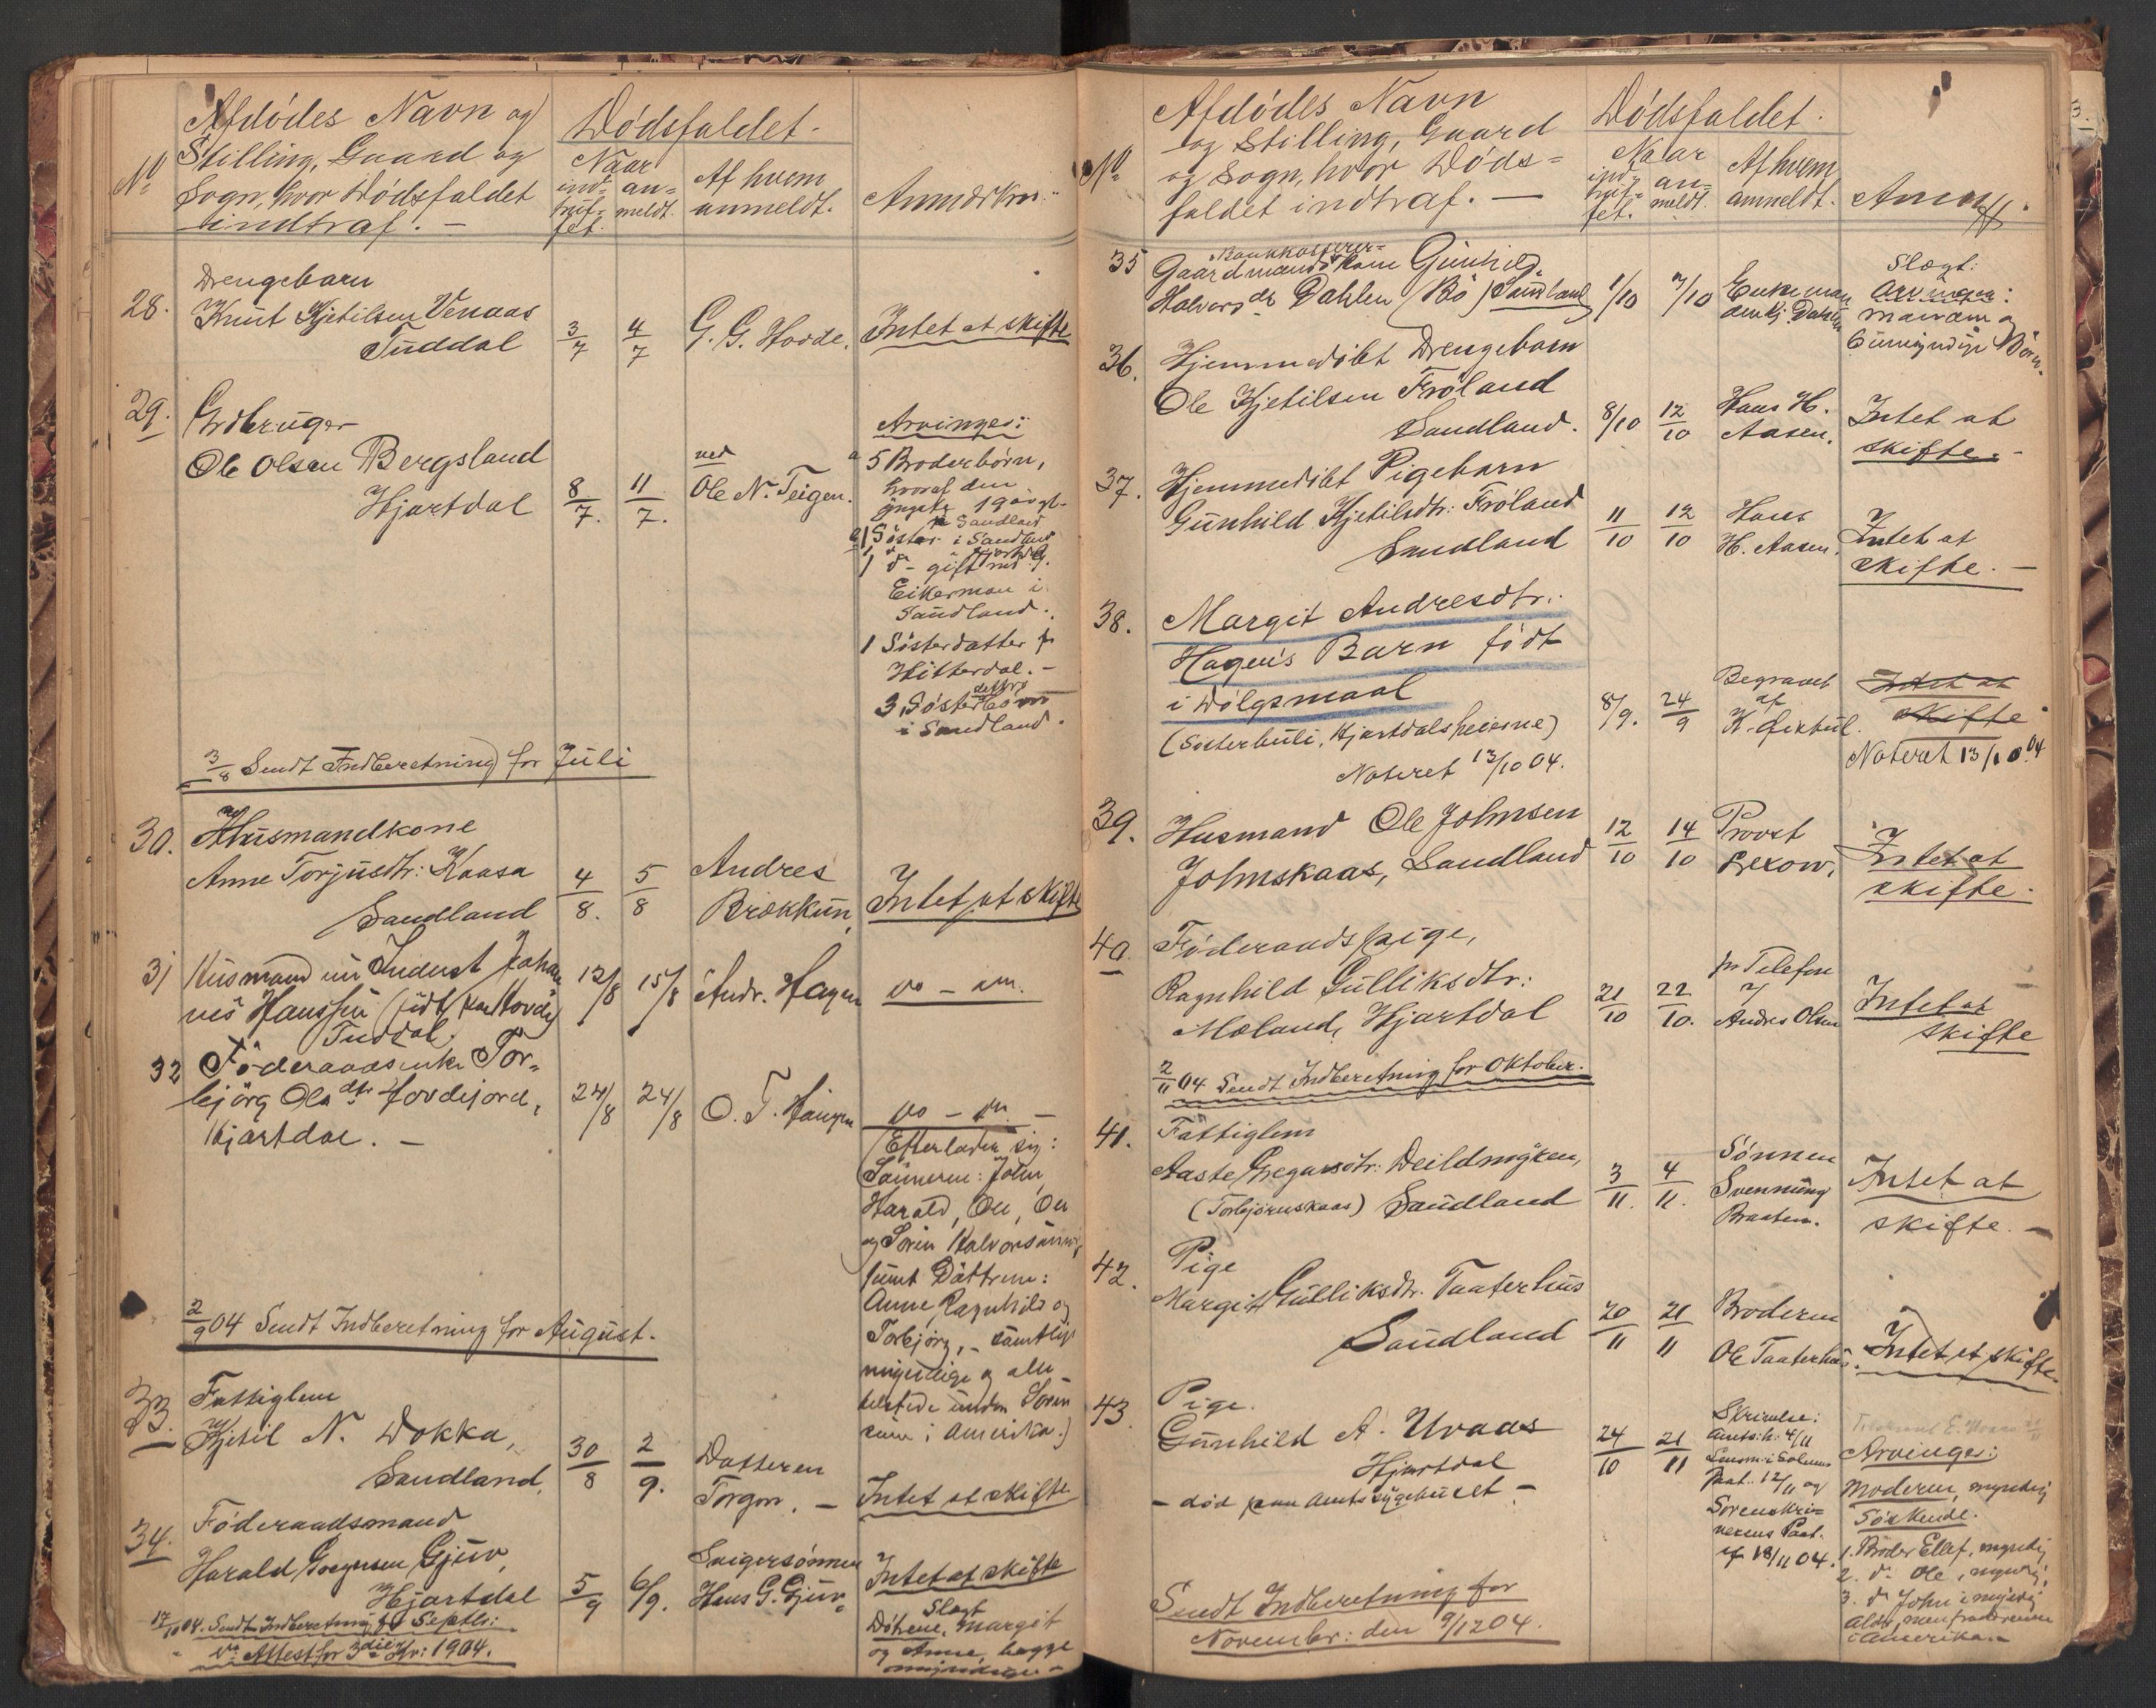 Afdödes Navn og
Stilling, Gaard og
Sogn, hvor Dödsfaldet
indtraf. –
Nº
Dödsfaldet.
Naar
ind- an-
truf- meldt.
fet.
Af hvem
anmeldt.
28.
Drengebarn
Knut Kjetilsen Venaas
Tuddal
3/7 4/7
G. G. Hovde.
Intet at skifte
29.
Gårdbruger
Ole Olsen Bergsland
Hjartdal
8/7. 11/7.
ved
Ole N. Teigen.
Arvinger:
5 Broderbörn,
hvoraf den
yngste 19 aar gl.
1 Söster i Sandland
1 do – gift med
Eikerman i
Saudland.
1 Sösterdatter fr
Hitterdal. –
3 Söster
i Saudland.
3/8 Sendt Indberetning for Juli
30.
Husmandkone
Anne Torjusdtr: Kaasa
Saudland
4/8. 5/8
Andres
Brækkun,
Intet at skifte
31
Husmand
Hanssen (födt Hovde)
Tuddal.
12/8 15/8
Andr. Hagen
do – do.
32
Föderaadsenke Tor-
björg Olsdtr Hovdejord,
Hjartdal. –
24/8 24/8
O. T. Haugen
do – do –
(Efterlader sig:
Sönnerne: John,
Harald, Ole, Ole
og Sören Halvorsönner,
samt Döttrene:
Anne, Ragnhild og
Torbjörg, – samtlige
myndige og alle
tilstede unden Sören
som i Amerika.)
2/9 04 Sendt Indberetning for August.
33.
Fattiglem
Kjetil N. Dokka,
Saudland,
30/8 2/9.
Datteren
Torgon. –
Intet at skifte
34.
Föderaadsmand
Harald Gregersen Gjuv,
Hjartdal
5/9 6/9.
Svigersönnen
Hans G. Gjuv.
Intet at skifte
Slægt
Dötrene, Margit
og Anne, begge
17/10 04. Sendt Indberetning for Septbr:
do Attest for 3die Kv: 1904.
Nº
Afdödes Navn
og Stilling, Gaard
og Sogn, hvor Döds-
faldet indtraf. –
Dödsfaldet.
Naar
ind- an-
truf- meldt.
fet.
Af hvem
anmeldt.
Anm.
35
Bankkasserer-
Gaardmandskone Gunhild
Halvorsdtr Dahlen (Bö) Saudland
1/10 7/10
Enkeman
Dahlen
Slægt:
Arvinger:
og
6 umyndige Börn.
36.
Hjemmedöbt Drengebarn
Ole Kjetilsen Fröland
Saudland.
8/10 12/10
Hans H.
Aasen.
Intet at
skifte. –
37.
Hjemmedöbt Pigebarn
Gunhild Kjetilsdtr: Fröland
Saudland
11/10 12/10
Hans
H. Aasen.
Intet at
skifte. –
38.
Margit Andresdtr.
Hagen's Barn födt
i Dölgsmaal
(Sösterbuli, Hjartdalsheierne)
Noteret 13/10 04.
8/9. 24/9
Begravet
af
K.
Intet at
skifte
Noteret 13/10 04
39.
Husmand Ole Johnsen
Johnskaas, Saudland
12/10 14/10
Provst
Lexow.
Intet at
skifte.
40.
Föderaadspige,
Ragnhild Gulliksdtr:
Mæland, Hjartdal
21/10 22/10.
pr Telefon
Andres Olsen
Intet at
skifte
2/11 04 Sendt Indberetning for Oktober.
41.
Fattiglem
Aaste Gregarsdtr: Deildmyren,
(Torbjörnskaas) Saudland
3/11. 4/11.
Sönnen
Svennung
Braaten.
Intet at
skifte. –
42.
Pige
Margit Gulliksdtr. Taaterhus
Saudland
20/11 21/11
Broderen
Ole Taaterhus.
Intet at skifte.
43.
Pige.
Gunhild A. Uraas
Hjartdal
– död paa Amtssygehuset –
24/10 21/11
Skrivelse:
Amtsh. 4/11
Lensm. i Solum
Paat. 12/11 og
Sorenskri-
verens Paat.
af 18/11 04.
Arvinger:
Moderen, myndig
Söskende.
1. Broder Ellef, myndig
2. do Ole, myndig,
3. do John i myndig
Alder, men fraværende
i Amerika. –
Sendt Indberetning for
Novembr: den 9/12 04.